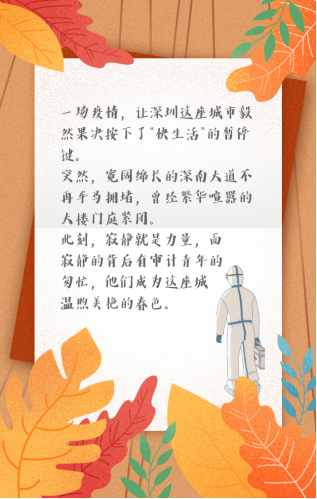 一场疫情，让深圳这座城市毅
然果决按下了“快生活”的暂停
键。
突然，宽阔绵长的深南大道不
再车马拥堵，曾经繁华喧嚣的
大楼门庭紧闭。
此刻，寂静就是力量，而
寂静的背后有审计青年的
匆忙，他们成为这座城
温煦美艳的春色。